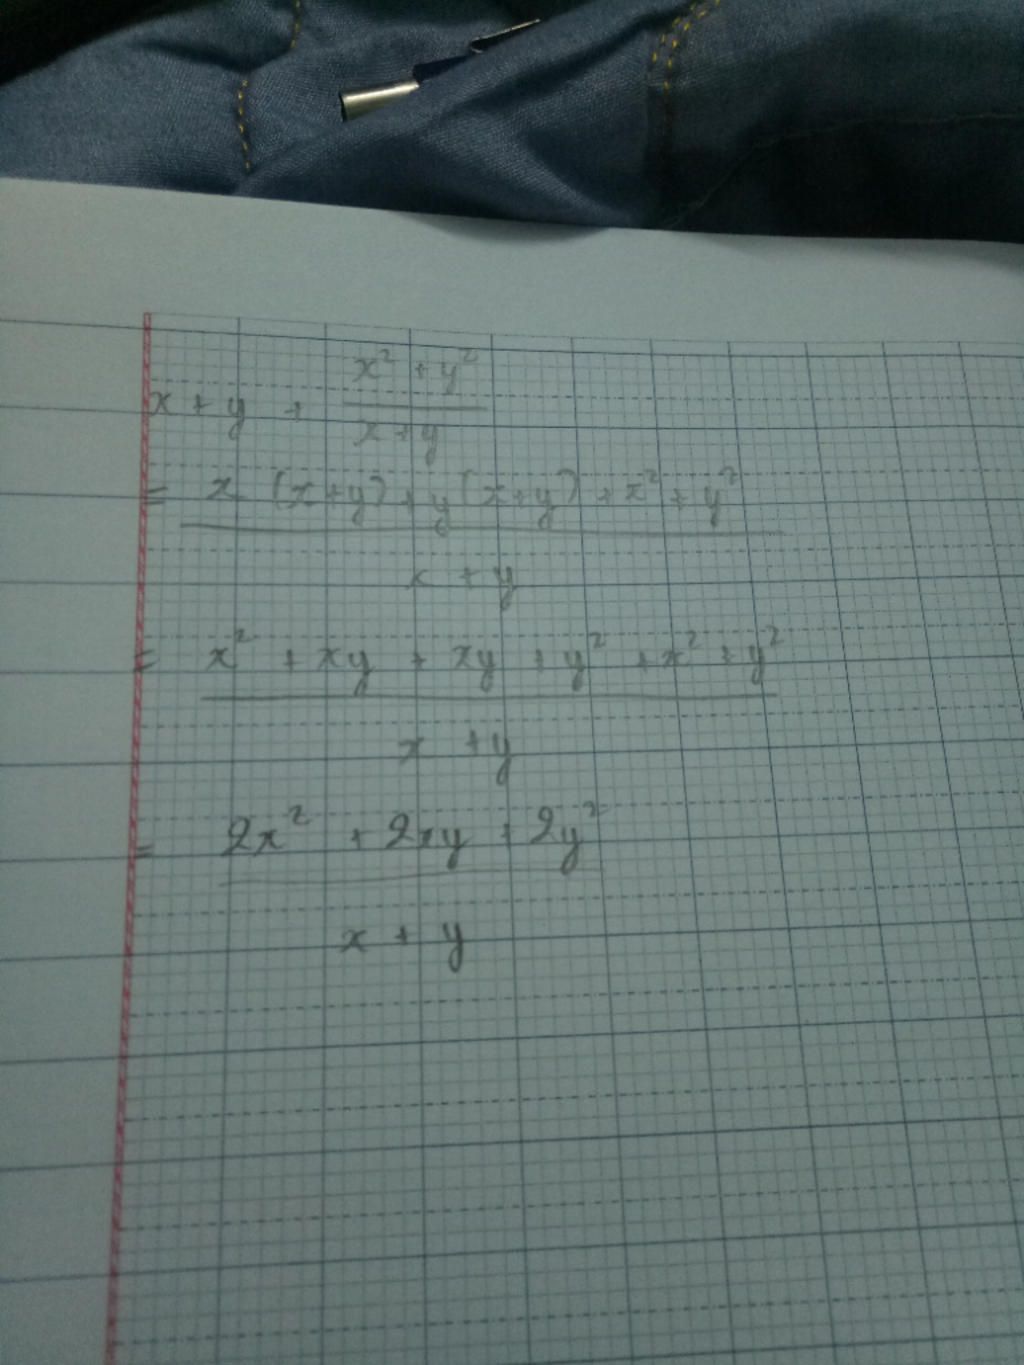 x + y + x² + y² / x + y
= x (x+y) + y (x+y) + x² + y²
x + y
= x² + xy + xy + y² + x² + y²
x + y
= 2x² + 2xy + 2y²
x + y